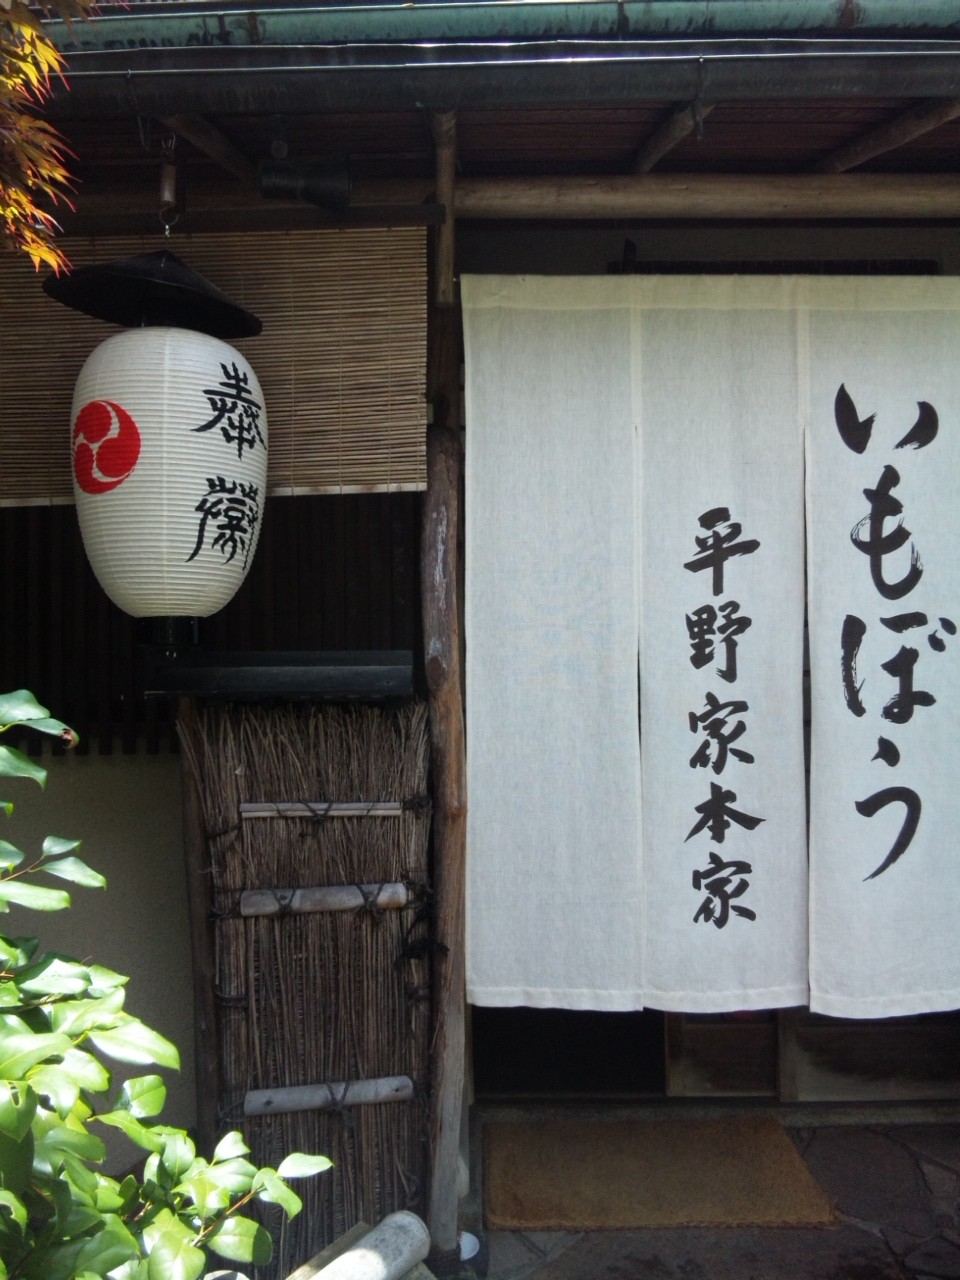 いもぼう
平野家本家
奉燈